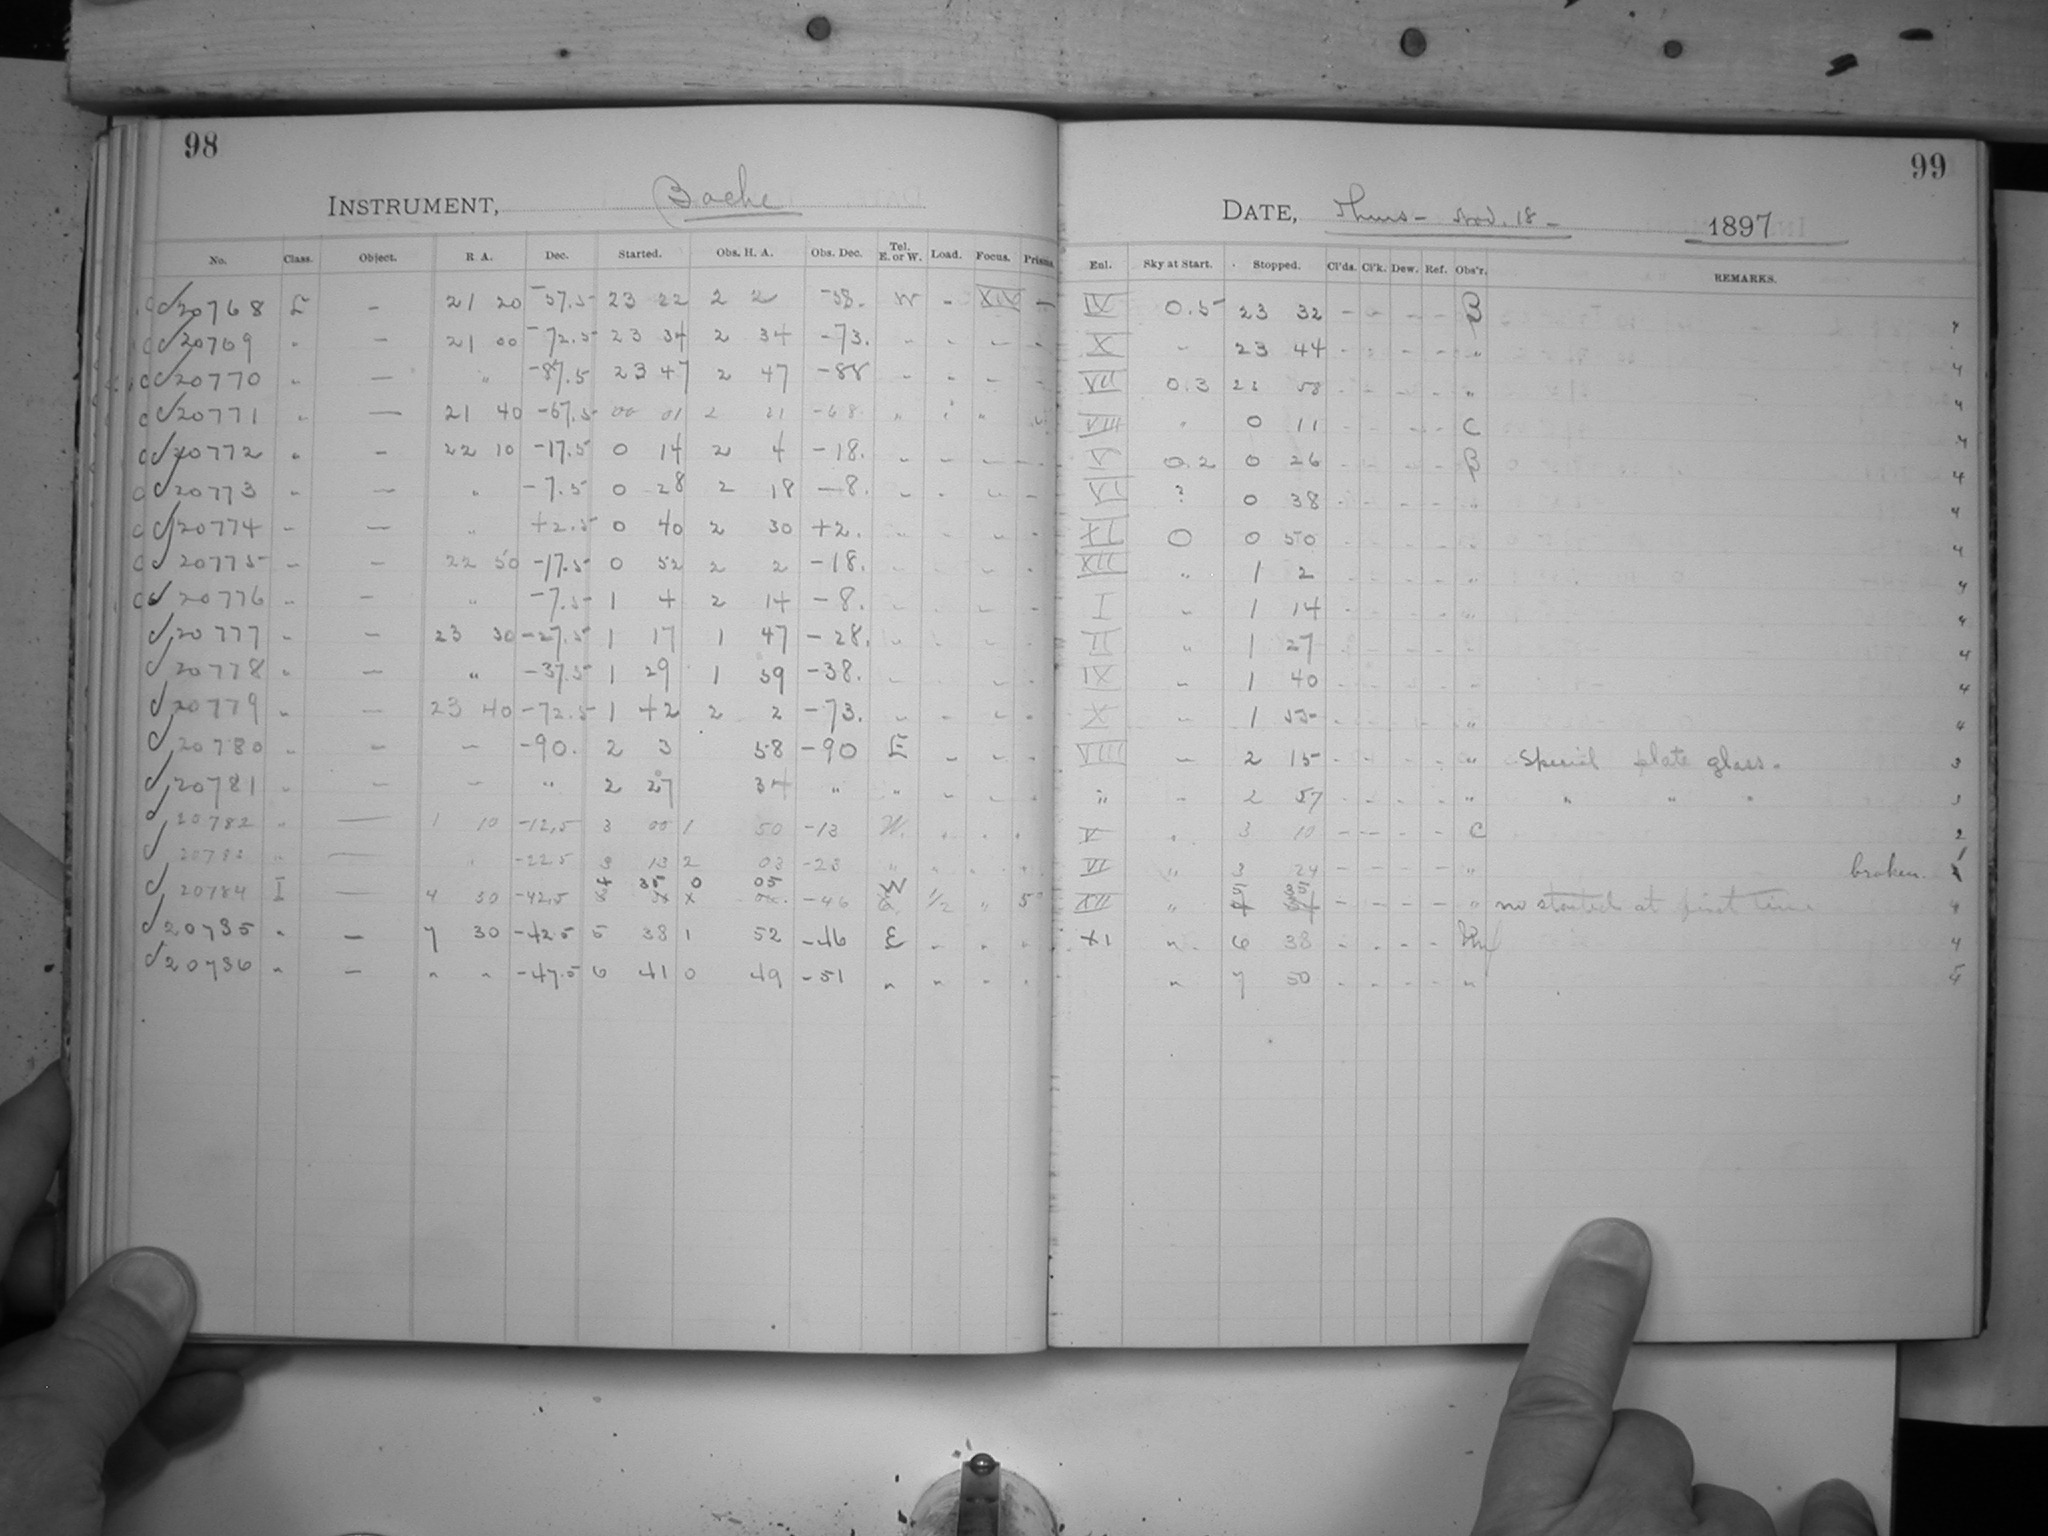 98
INSTRUMENT, Bache
No. Class. Object. R A. Dec. Started. Obs. H. A. Obs. Dec. Tel. E. or W. Load. Focus. Prisms.
20768 L - 21 20 -57.5 23 22 2 2 -58. W - XIV -
20769 " - 21 00 -72.5 23 34 2 34 -73. " " " "
20770 " - " -87.5 23 47 2 47 -88 " " " "
20771 " - 21 40 -67.5 00 01 2 21 -68 " " " "
20772 " - 22 10 -17.5 0 14 2 4 -18. " " " "
20773 " - " -7.5 0 28 2 18 -8. " " " "
20774 " - " +2.5 0 40 2 30 +2. " " " "
20775 " - 22 50 -17.5 0 52 2 2 -18. " " " "
20776 " - " -7.5 1 4 2 14 -8. " " " "
20777 " - 23 30 -27.5 1 17 1 47 -28. " " " "
20778 " - " -37.5 1 29 1 59 -38. " " " "
20779 " - 23 40 -72.5 1 42 2 2 -73. " " " "
20780 " - - -90. 2 3 58 -90 E " " "
20781 " - - " 2 27 34 " " " " "
20782 " - 1 10 -12.5 3 00 1 50 -13 W. " " "
20783 " - " -22.5 3 13 2 03 -23 " " " "
20784 I - 4 30 -42.5 4 35 0 05 -46 W 1/2 " 5
20785 " - 7 30 -42.5 5 38 1 52 -46 E " " "
20786 " - " " -47.5 6 41 0 49 -51 " " " "
99
DATE, Thurs - Nov. 18 - 1897
Enl. Sky at Start. Stopped. Cl'ds. Cl'k. Dew. Ref. Obs'r. REMARKS.
IX 0.5 23 32 - - - - B 4
X " 23 44 - - - - " 4
VII 0.3 23 58 - - - - " 4
VIII " 0 11 - - - - C 4
V 0.2 0 26 - - - - B 4
VI ? 0 38 - - - - " 4
XI 0 0 50 - - - - " 4
XII " 1 2 - - - - " 4
I " 1 14 - - - - " 4
II " 1 27 - - - - " 4
IX " 1 40 - - - - " 4
X " 1 55 - - - - " 4
VIII " 2 15 - - - - " Special plate glass. 3
" " 2 57 - - - - " " " " 3
V " 3 10 - - - - C 2
VI " 3 24 - - - - " broken.
XII " 5 35 - - - - " no started at first time 4
XI " 6 38 - - - - 4
" 7 50 - - - - "